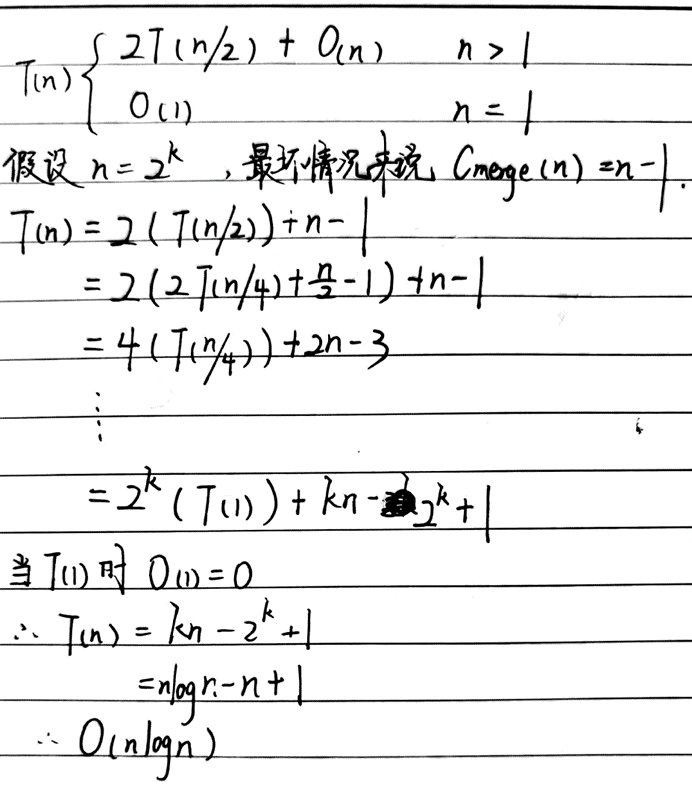 T(n) { 2T(n/2) + O(n) n > 1
O(1) n = 1
假设 n = 2^k , 最坏情况来说, Cmerge(n) = n - 1.
T(n) = 2(T(n/2)) + n - 1
= 2(2T(n/4) + n/2 - 1) + n - 1
= 4(T(n/4)) + 2n - 3
⋮
= 2^k (T(1)) + kn - 2^k + 1
当 T(1) 时 O(1) = 0
∴ T(n) = kn - 2^k + 1
= nlogn - n + 1
∴ O(nlogn)